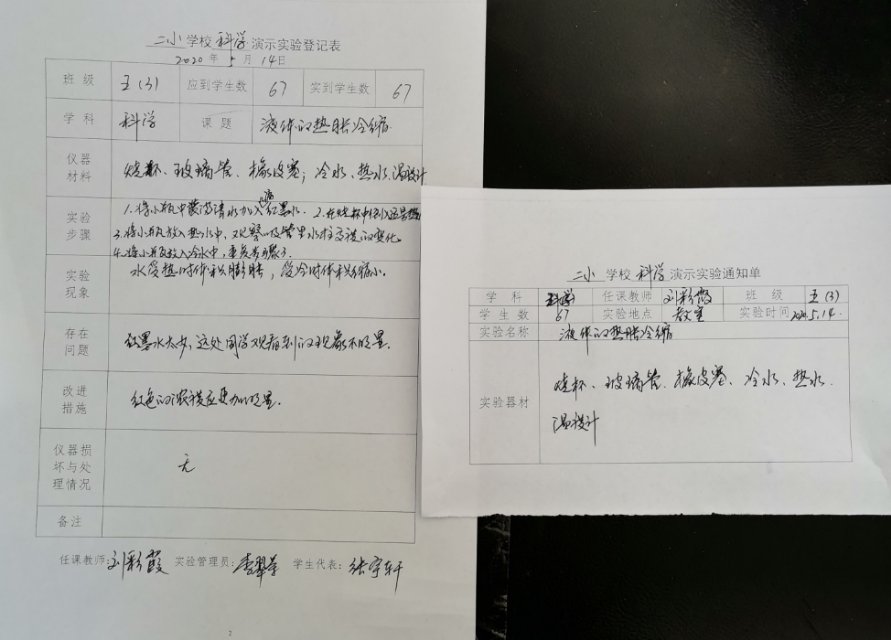 二小学校科学演示实验登记表
2020年5月14日
班级 五(3) 应到学生数 67 实到学生数 67
学科 科学 课题 液体的热胀冷缩
仪器材料 烧杯、玻璃管、橡皮塞;冷水、热水、温度计
实验步骤 1.将小瓶中装满清水加入滴红墨水. 2.在烧杯中倒入适量热
3.将小瓶放入热水中,观察吸管里水柱高度的变化.
4.将小瓶放入冷水中,重复步骤3.
实验现象 水受热时体积膨胀,受冷时体积缩小.
存在问题 红墨水太少,远处同学观看到的现象不明显.
改进措施 红色的浓度应更加明显.
仪器损坏与处理情况 无
备注
任课教师:刘彩霞 实验管理员:李翠 学生代表:张宇轩
2
二小学校科学演示实验通知单
学科 科学 任课教师 刘彩霞 班级 五(3)
学生数 67 实验地点 教室 实验时间 5.14.
实验名称 液体的热胀冷缩
实验器材 烧杯、玻璃管、橡皮塞、冷水、热水.
温度计